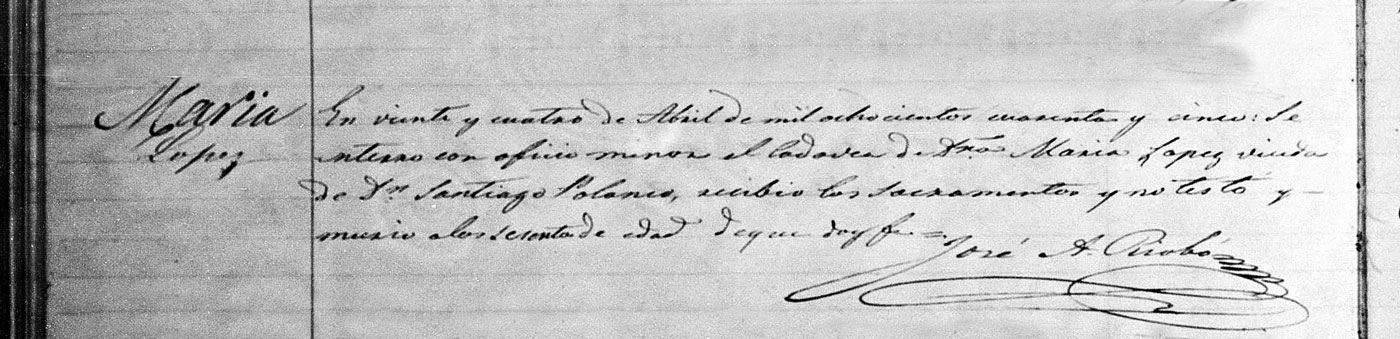 Maria
Lopez
En viente y cuatro de Abril de mil ochocientos cuarenta y cinco: Se
interro con oficio minor el cadaver de Dña Maria Lopez viuda
de Dn Santiago Polanco, recibio los sacramentos y no testó y
murio a los sesenta de edad de que doy fe =
José A.